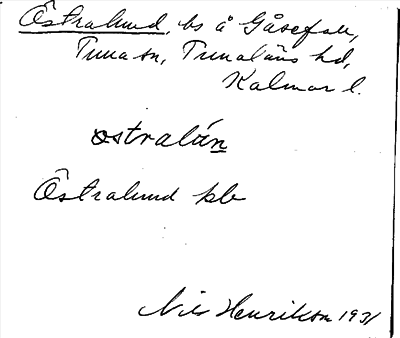 Östralund, bs å Gåsefall,
Tuna sn, Tunaläns hd,
Kalmar l.
östralún
Östralund plb
Nils Henrikson 1931